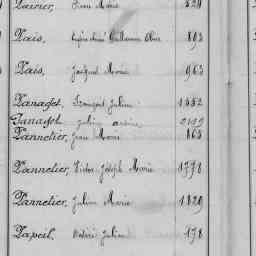 Pairier, Pierre Marie 829
Pais, Guillaume 893
Pais, Jacques Marie 963
Panaget, François Julien 1552
Panaget Julien 2109
Pannetier, Jean Marie 863
Pannetier, Victor Joseph Marie 1778
Pannetier, Julien Marie 1820
Papeil, Julien 178